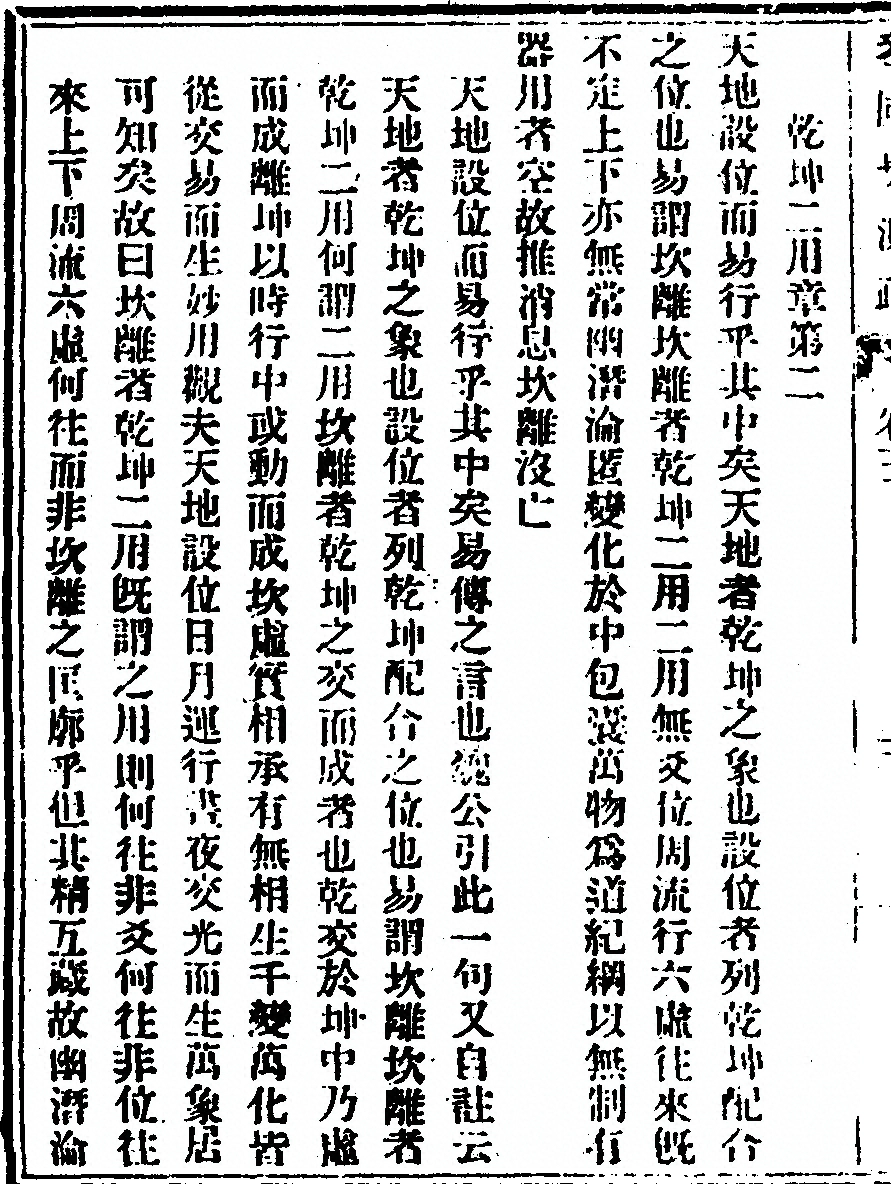 乾坤二用章第二
天地設位而易行乎其中矣天地者乾坤之象也設位者列乾坤配合
之位也易謂坎離坎離者乾坤二用二用無爻位周流行六虛往來既
不定上下亦無常幽潛淪匿變化於中包囊萬物爲道紀綱以無制有
器用者空故推消息坎離沒亡
天地設位而易行乎其中矣易傳之言也魏公引此一句又自註云
天地者乾坤之象也設位者列乾坤配合之位也易謂坎離坎離者
乾坤二用何謂二用坎離者乾坤之交而成者也乾交於坤中乃虛
而成離坤以時行中或動而成坎虛實相承有無相生千變萬化皆
從交易而生妙用觀夫天地設位日月運行晝夜交光而生萬象居
可知矣故曰坎離者乾坤二用既謂之用則何往非爻何往非位往
來上下周流六虛何往而非坎離之匡廓乎但其精互藏故幽潛淪